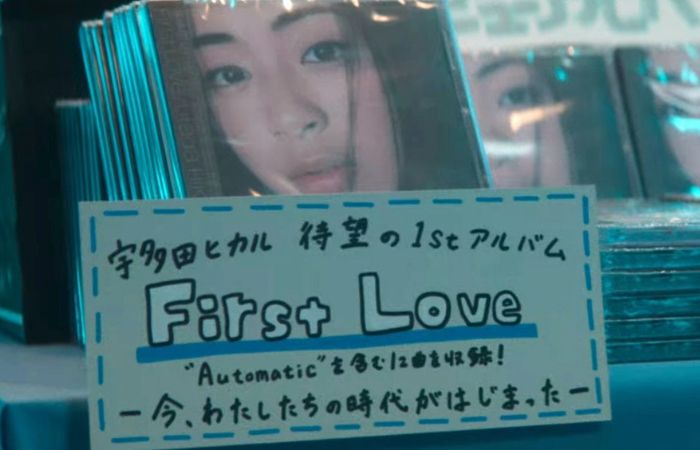 宇多田ヒカル 待望の1stアルバム
First Love
"Automatic"を含む12曲を収録!
ー今、わたしたちの時代がはじまったー